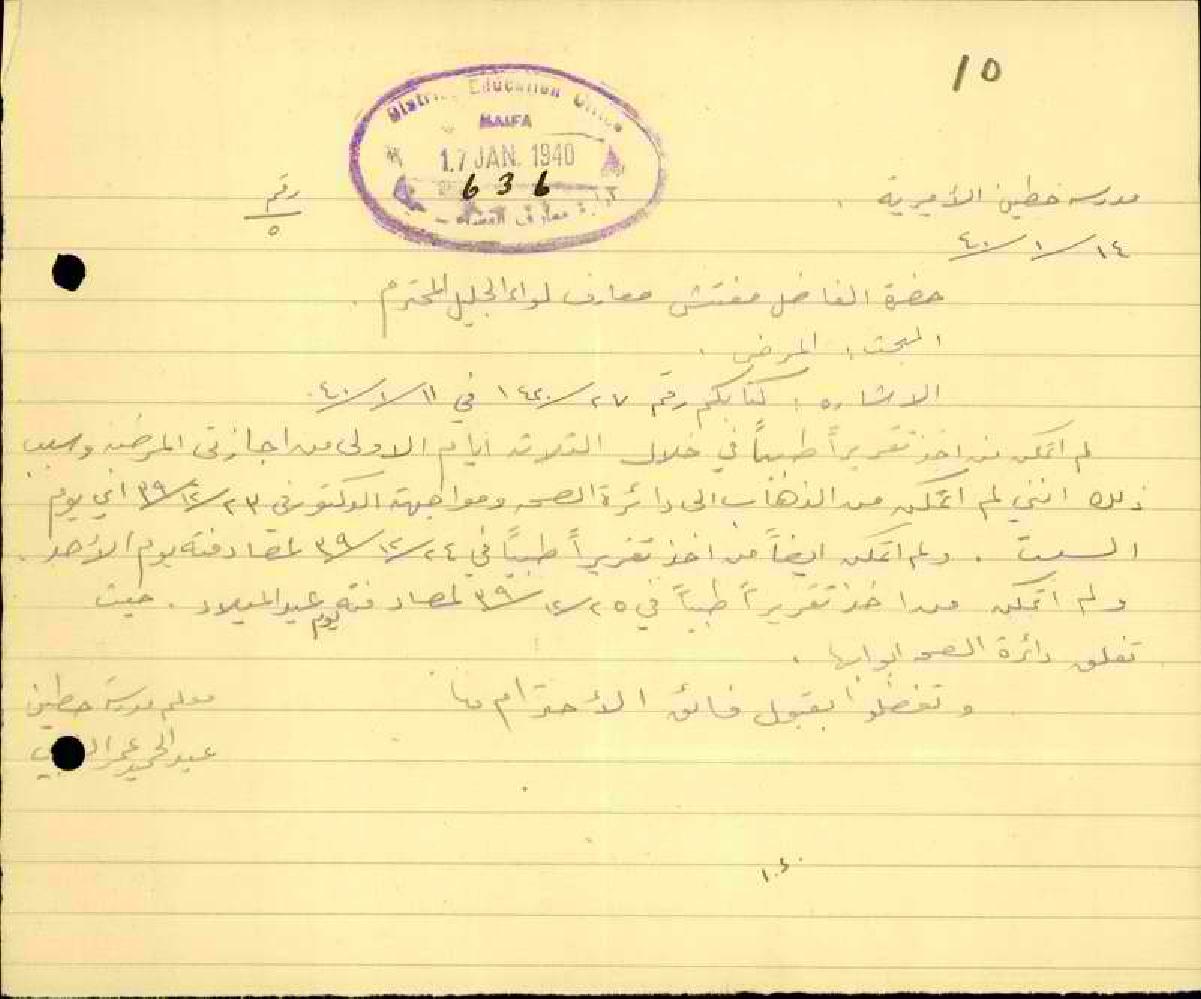 10
District Education Office
HAIFA
17 JAN. 1940
636
رقم
٥
مدرسة حطين الأميرية .
١٤/١/٤٠
حضرة الفاضل مفتش معارف لواء الجليل المحترم .
المبحث : المرض .
الاشاره : كتابكم رقم ١٤٢٠/٢٧ في ١١/١/٤٠.
لم اتمكن من اخذ تقريراً طبياً في خلال الثلاثة ايام الاولى من اجازتي المرضية وسبب
ذلك انني لم اتمكن من الذهاب الى دائرة الصحه ومواجهة الدكتور في ٢٣/١٢/٣٩ اي يوم
السبت . ولم اتمكن ايضاً من اخذ تقريراً طبياً في ٢٤/١٢/٣٩ لمصادفته يوم الأحد .
ولم اتمكن من اخذ تقريراً طبياً في ٢٥/١٢/٣٩ لمصادفته يوم عيد الميلاد . حيث
تغلق دائرة الصحه ابوابها .
وتفضلوا بقبول فائق الأحترام
معلم مدرسة حطين
عبد الحميد عمر